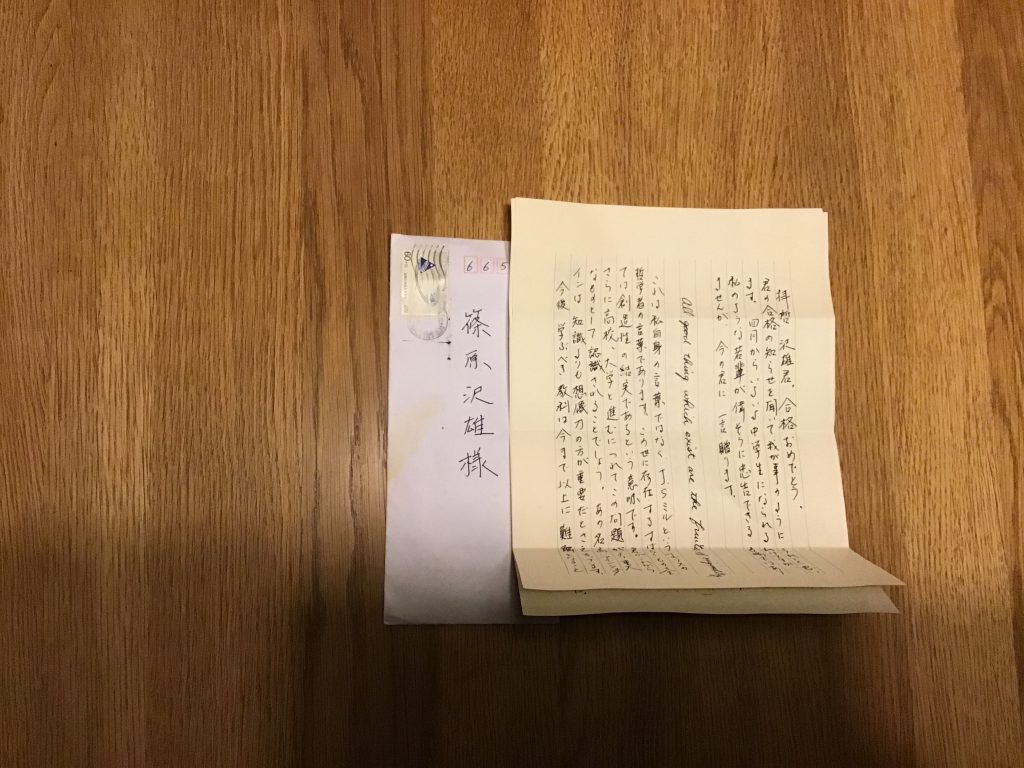 665
篠原沢雄様
拝哲 沢雄君、合格おめでとう。
君の合格の知らせを聞いて我が事のように
ます。四月からいよいよ中学生になられる
私のような若輩が偉そうに忠告できる
ませんが、今の君に一言贈ります。
All good thing which exist are the fruits
これは私自身の言葉ではなく J.S.ミルという
哲学者の言葉であります。この世に存在するすば
ては創造性の結実であるという意味です。
さらに高校、大学と進むにつれてこの問題
なものとして認識されることでしょう。あの名
インは知識よりも想像力の方が重要だとさえ
今後、学ぶべき教科は今まで以上に難